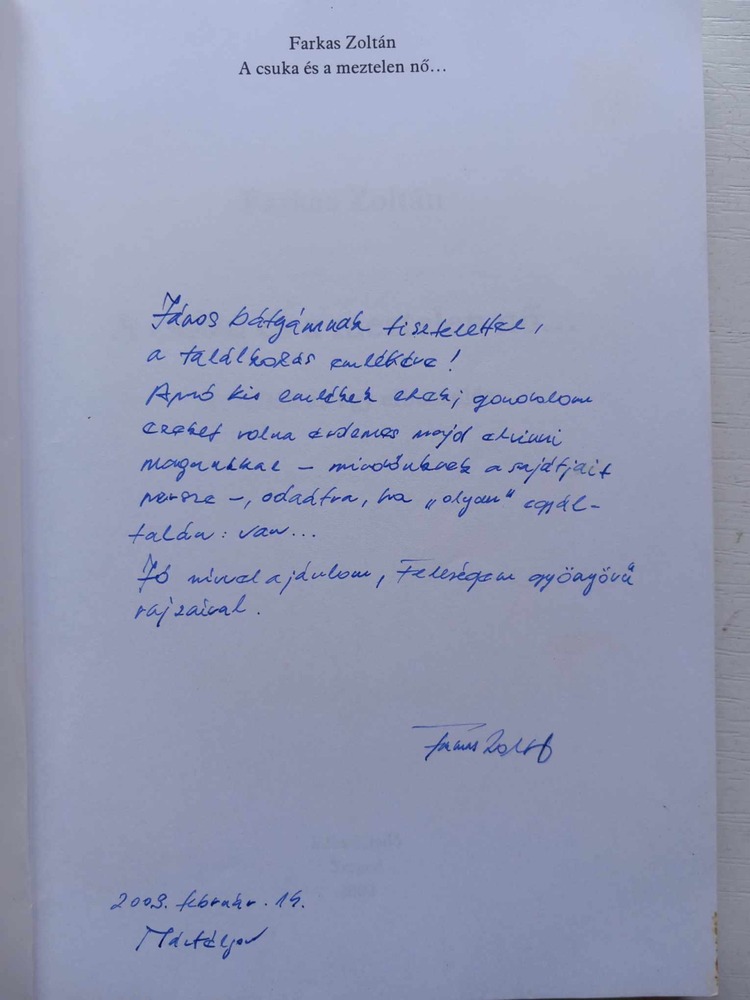 Farkas Zoltán
A csuka és a meztelen nő...
János bátyámnak tisztelettel,
a találkozás emlékére!
Apró kis emlékek ezek; gondolom
ezeket volna érdemes majd elvinni
magunkkal – mindőnknek a sajátjait
persze –, odaátra, ha „olyan" egyál-
talán: van...
Jó szívvel ajánlom, Feleségem gyönyörű
rajzaival.
Farkas Zoltán
2009. február. 14.
Mártély